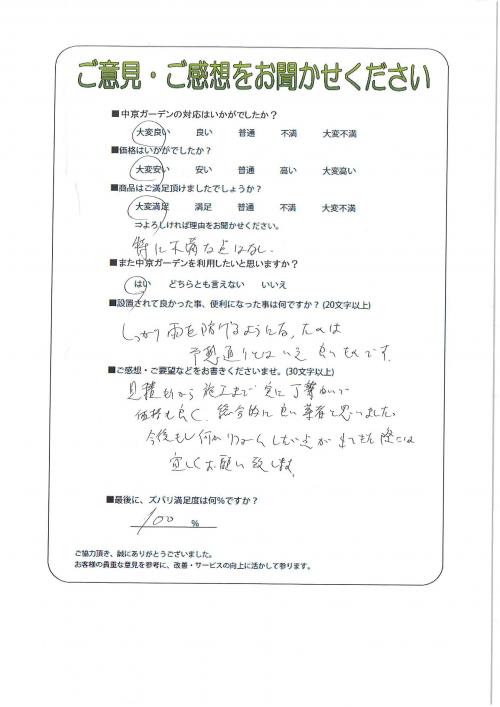 ご意見・ご感想をお聞かせください
■中京ガーデンの対応はいかがでしたか？
大変良い 良い 普通 不満 大変不満
■価格はいかがでしたか？
大変安い 安い 普通 高い 大変高い
■商品はご満足頂けましたでしょうか？
大変満足 満足 普通 不満 大変不満
⇒よろしければ理由をお聞かせください。
特に不満な点はなし。
■また中京ガーデンを利用したいと思いますか？
はい どちらとも言えない いいえ
■設置されて良かった事、便利になった事は何ですか？(20文字以上)
しっかり雨を防げるようになる，
予想通りとはいえ 良いものです．
■ご感想・ご要望などをお書きくださいませ。(30文字以上)
見積もりから施工まで 丁寧
価格も良く、総合的に良い 業者と思いました。
今後もし何か リフォームしたい点が 出てきた際には
宜しくお願い致します。
■最後に、ズバリ満足度は何％ですか？
100 ％
ご協力頂き、誠にありがとうございました。
お客様の貴重な意見を参考に、改善・サービスの向上に活かして参ります。